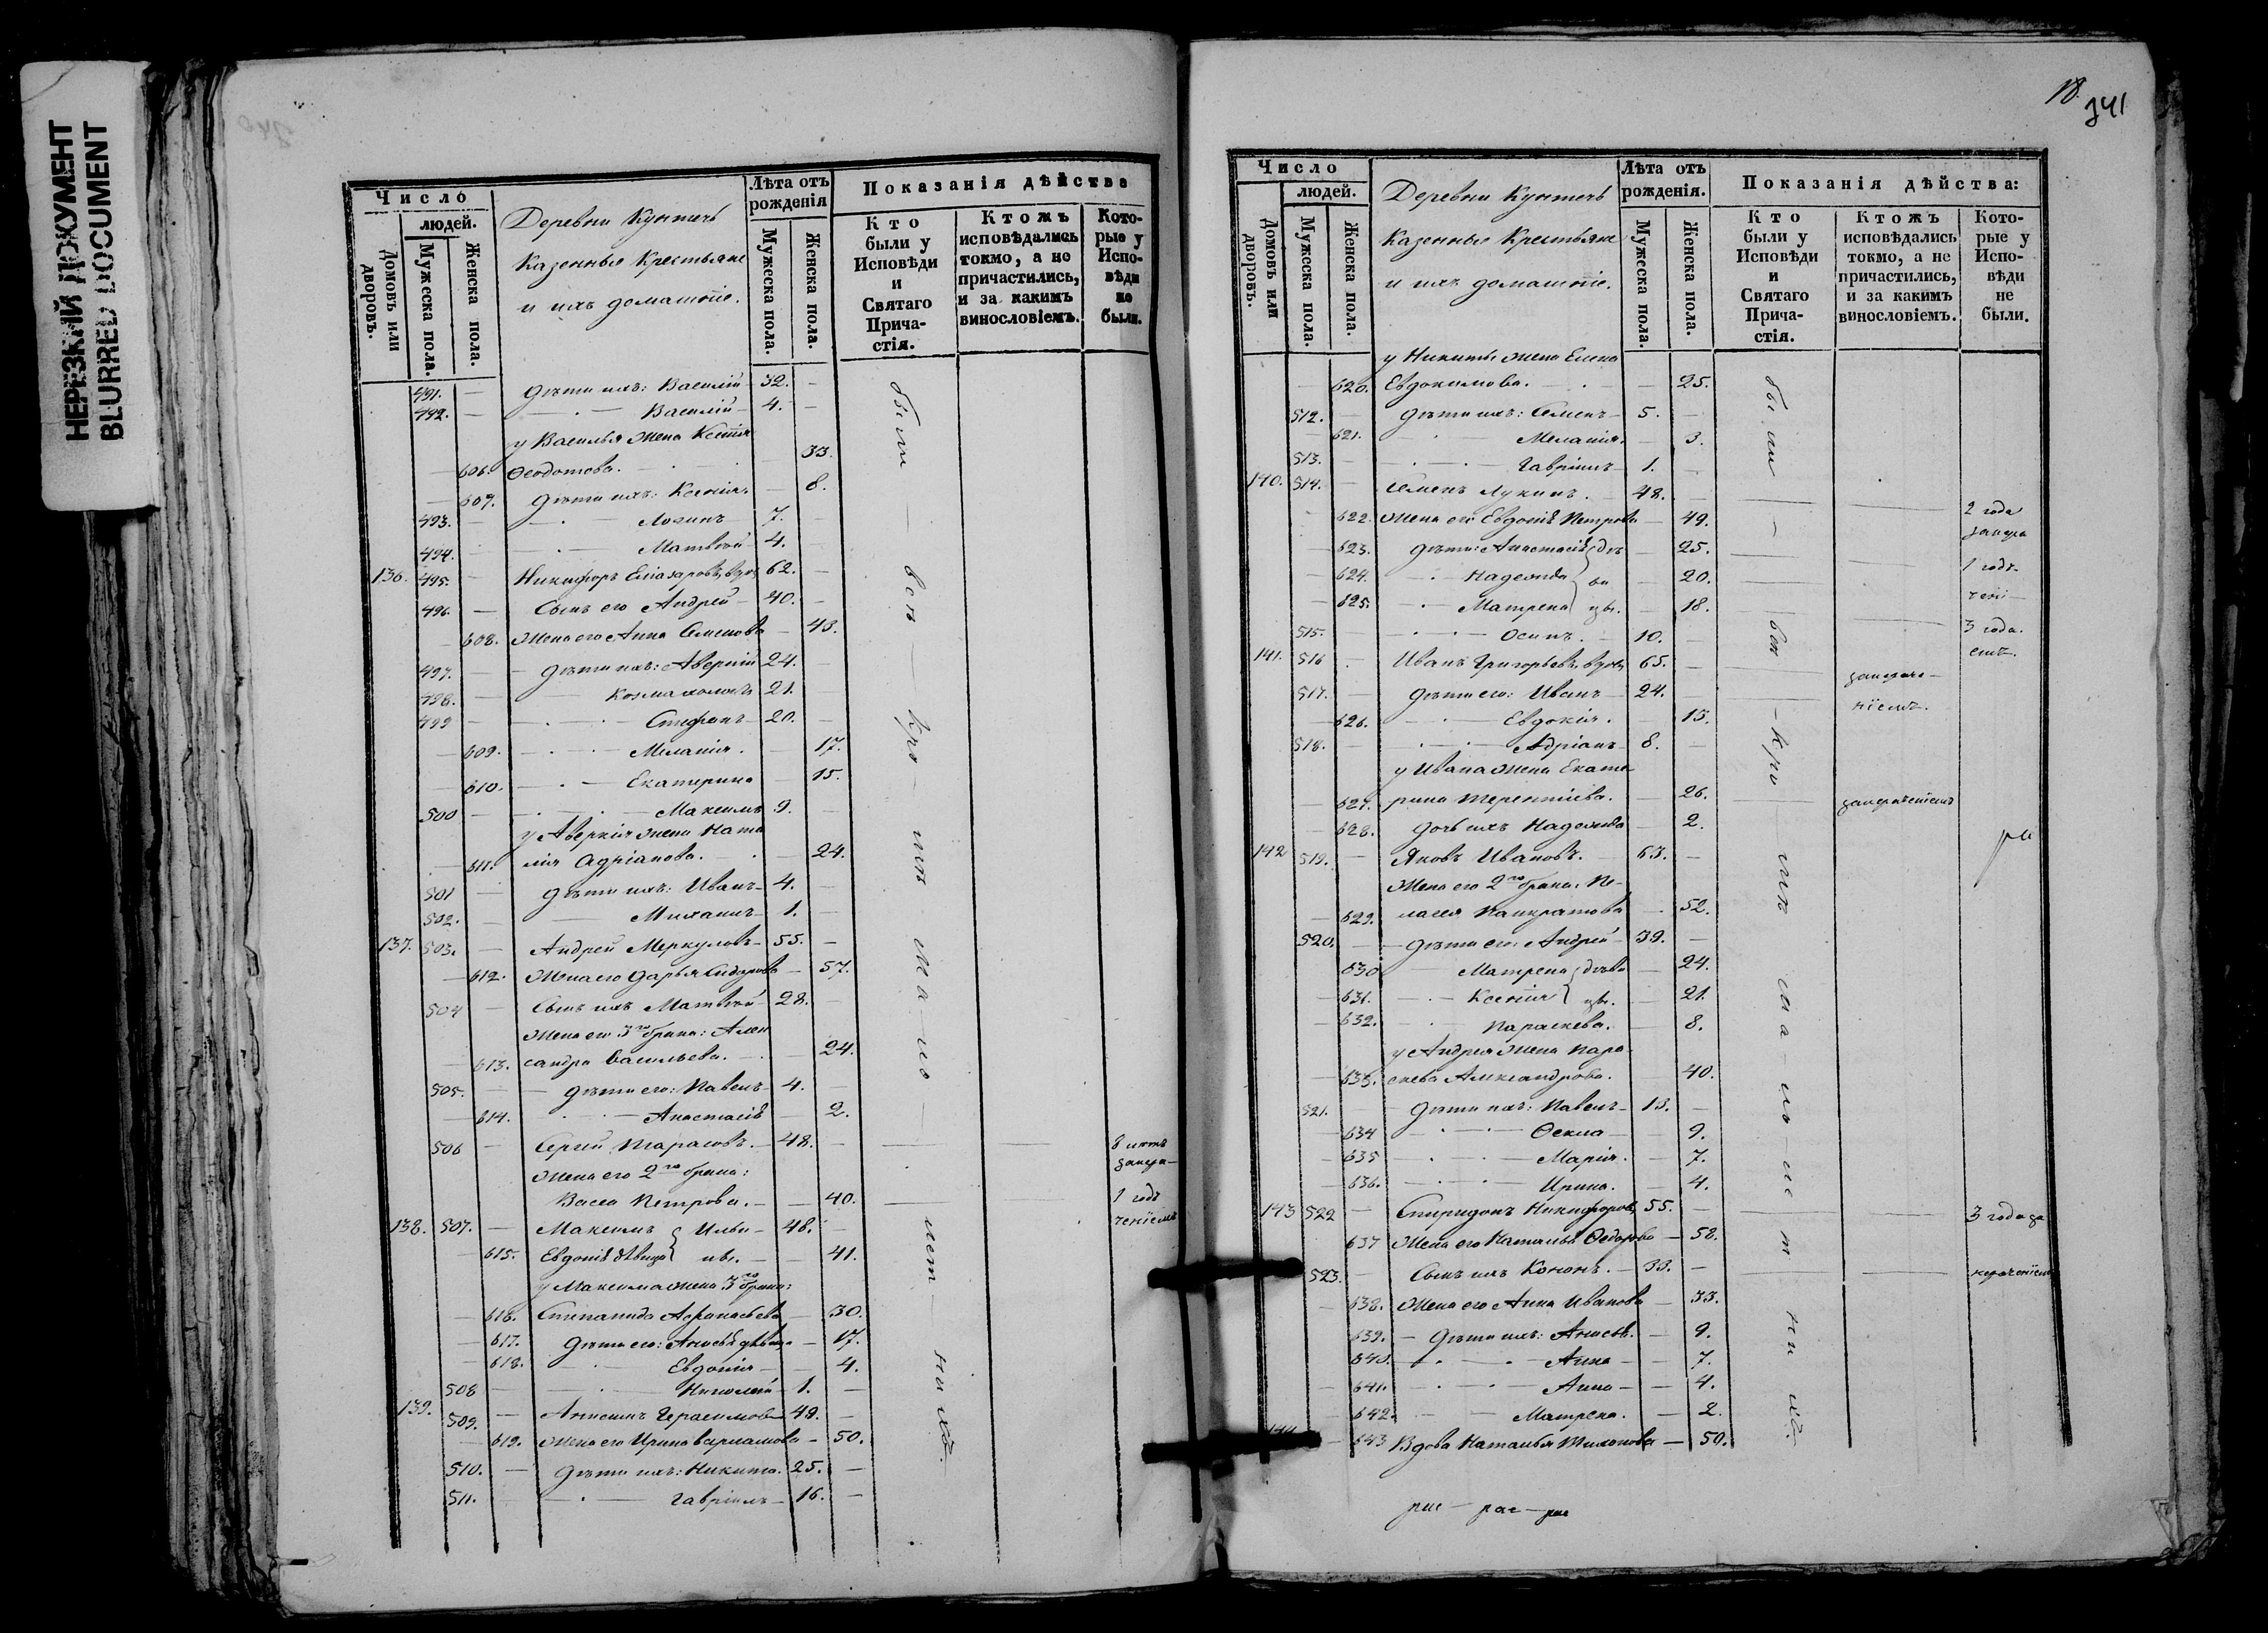 НЕРЕЗКИЙ ДОКУМЕНТ
BLURRED DOCUMENT
Число
людей.
Домовъ или дворовъ.
Мужеска пола.
Женска пола.
Деревни Кунтечь
Казенныя Крестьяне
и ихъ домашніе.
Лѣта отъ рожденія
Мужеска пола.
Женска пола.
Показанія дѣйства
Кто были у Исповѣди и Святаго Причастія.
Ктожъ исповѣдались токмо, а не причастились, и за какимъ винословіемъ.
Которые у Исповѣди не были.
491. — дѣти ихъ: Василій — 32. —
492. — Василій — 4. —
у Василья жена Ксенія
606. Ѳеодотова. 33.
607. дѣти ихъ: Ксенія — 8.
493. — Логинъ 7.
494. Матвѣй 4.
136. 495. — Никифоръ Еліазаровъ, вдов 62. —
496. — Сынъ его Андрей — 40. —
608. Жена его Анна Семенова — 43.
497. — дѣти ихъ: Аверкій 24. —
498. — Козма холостъ 21.
499 — Стефанъ — 20.
609. Меланія. — 17.
610. Екатерина — 15.
500 — Максимъ 9.
у Аверкія жена Ната
611. лія Адріанова. — 24.
501 — дѣти ихъ: Иванъ — 4. —
502. — Михаилъ 1. —
137. 503. — Андрей Меркуловъ — 55. —
612. Жена его Дарья Сидорова — 57.
504 — Сынъ ихъ Матвѣй — 28. —
Жена его 3го брака: Алек
613. сандра Васильева. — 24.
505. — дѣти его: Павелъ — 4. —
614. Анастасія — 2.
506 — Сергій Тарасовъ. — 48. — 8 лѣтъ
Жена его 2го брака: запер—
Васса Петрова. — 40. 1 годъ
138. 507. — Максимъ } Ильи — 48. — ченіемъ
615. Евдокія дѣвица } ны. — 41.
у Максима жена 3го брака:
616. Степанида Афанасьева — 30.
617. дѣти его: Анисья дѣвица — 17.
618. Евдокія — 4.
508 — Николай — 1. —
139. 509. — Анисимъ Герасимовъ 49. —
619. Жена его Ирина Варламова — 50.
510. — дѣти ихъ: Никита. 25. —
511. Гавріилъ — 16. —
были — всѣ — кро — мѣ ма — ло — лет — нихъ.
18.
341
Число
людей.
Домовъ или дворовъ.
Мужеска пола.
Женска пола.
Деревни Кунтечь
Казенныя Крестьяне
и ихъ домашніе.
Лѣта отъ рожденія.
Мужеска пола.
Женска пола.
Показанія дѣйства:
Кто были у Исповѣди и Святаго Причастія.
Ктожъ исповѣдались токмо, а не причастились, и за какимъ винословіемъ.
Которые у Исповѣди не были.
у Никиты жена Елена
620. Евдокимова. — 25.
512. — дѣти ихъ: Семенъ — 5. —
621. Меланія. — 3.
513. — Гавріилъ — 1. —
140. 514. — Семенъ Лукинъ. — 48. —
622. Жена его Евдокія Петрова — 49. 2 года
623. дѣти: Анастасія } дѣ — 25. запер
624. Надежда } ви — 20. 1 годъ
625. Матрена } цы. — 18. чені—
515. Осипъ. — 10. — 3 года.
141. 516 Иванъ Григорьевъ, вдов. 65. — емъ.
517. — дѣти его: Иванъ — 24. — запираче—
626. Евдокія. — 15. ніемъ.
518. — Адріанъ — 8. —
у Ивана жена Екате
627. рина Терентіева. — 26.
628. дочь ихъ Надежда — 2.
142 519. — Яковъ Ивановъ. — 63. —
Жена его 2го брака: Пе-
629. лагея Панкратова — 52.
520. — дѣти его: Андрей — 39. —
630 Матрена } дѣви — 24.
631. Ксенія } цы. — 21.
632. Параскева. — 8.
у Андрея жена Пара
633. скева Александрова. — 40.
521. дѣти ихъ: Павелъ — 13. —
634 Ѳекла — 9.
635 Марія. — 7.
636. Ирина. — 4.
143 522 — Спиридонъ Никифоровъ 55. — 3 года за
637 Жена его Наталья Ѳедорова — 58.
523. — Сынъ ихъ Кононъ. — 33. —
638. Жена его Анна Иванова — 33.
639. — дѣти ихъ: Анисья. — 9.
640. Анна — 7.
641. Анна — 4.
642. Матрена. — 2.
144 643 Вдова Наталья Тихонова — 50.
были — всѣ — кро — мѣ ма — ло — лет нихъ.